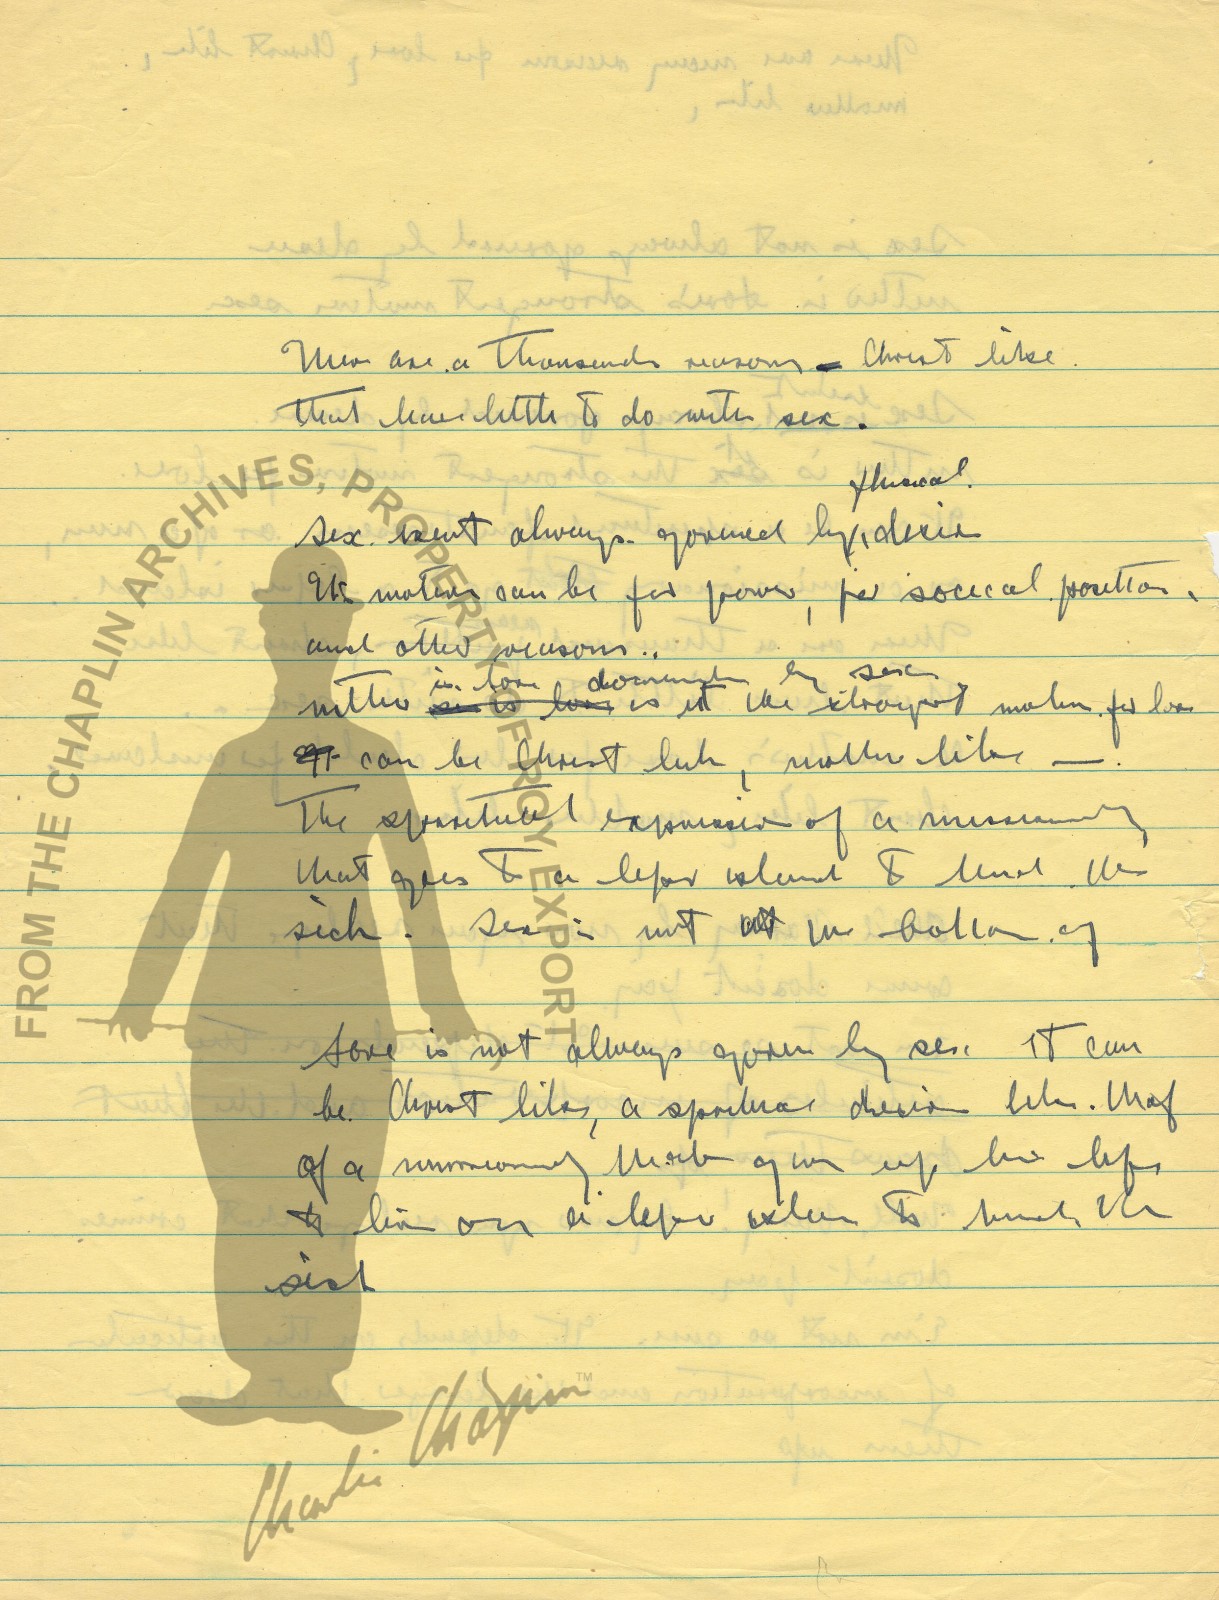 There are a thousands reasons - Christ like.
that have little to do with sex.
physical.
Sex isent always governed by desire
Its motive can be for power, for soceal position,
and other reasons..
is love dominated by sex
neither is it the strongest motive for love
It can be Christ like, mother like —.
The spiritual expression of a missionary
that goes to a leper island to tend the
sick. Sex is not at the bottom of
Love is not always govern by sex. It can
be Christ like, a spiritual desire like that
of a missionary that gives up his life
to live on a leper island to tend the
sick
FROM THE CHAPLIN ARCHIVES, PROPERTY OF ROY EXPORT
Charlie Chaplin™